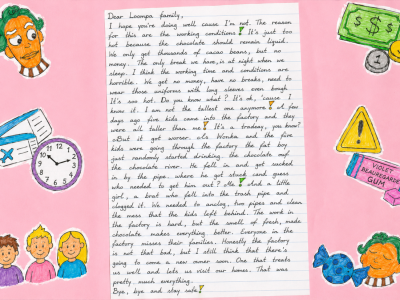 Dear Loompa family,
I hope you're doing well cause I'm not. The reason
for this are the working conditions! It's just too
hot because the chocolate should remain liquid.
We only get thousands of cacao beans, but no
money. The only break we have, is at night when we
sleep. I think the working time and conditions are
horrible. We get no money, have no breaks, need to
wear those uniforms with long sleeves even bough
It's soo hot. Do you know what? It's ok, 'cause I
know it. I am not the tallest one anymore! A few
days ago five kids came into the factory and they
were all taller than me! It's a tradegy, you know?
But it got worser. Mr Wonka and the five
kids were going through the factory the fat boy
just randomly started drinking the chocolate out
the chocolate river. He fell in and got sucked
in by the pipe. where he got stuck and guess
who needed to get him out? Me! And a little
girl, a brat who fell into the trash pipe and
clogged it. We needed to unclog, two pipes and clean
the mess that the kids left behind. The work in
the factory is hard, but the smell of fresh, made
chocolate makes everything better. Everyone in the
factory misses their families. Honestly the factory
is not that bad, but I still think that there's
going to come a new owner soon. One that treats
us well and lets us visit our homes. That was
pretty much everything.
Bye, bye and stay safe!
VIOLET
BEAUREGARDE
GUM